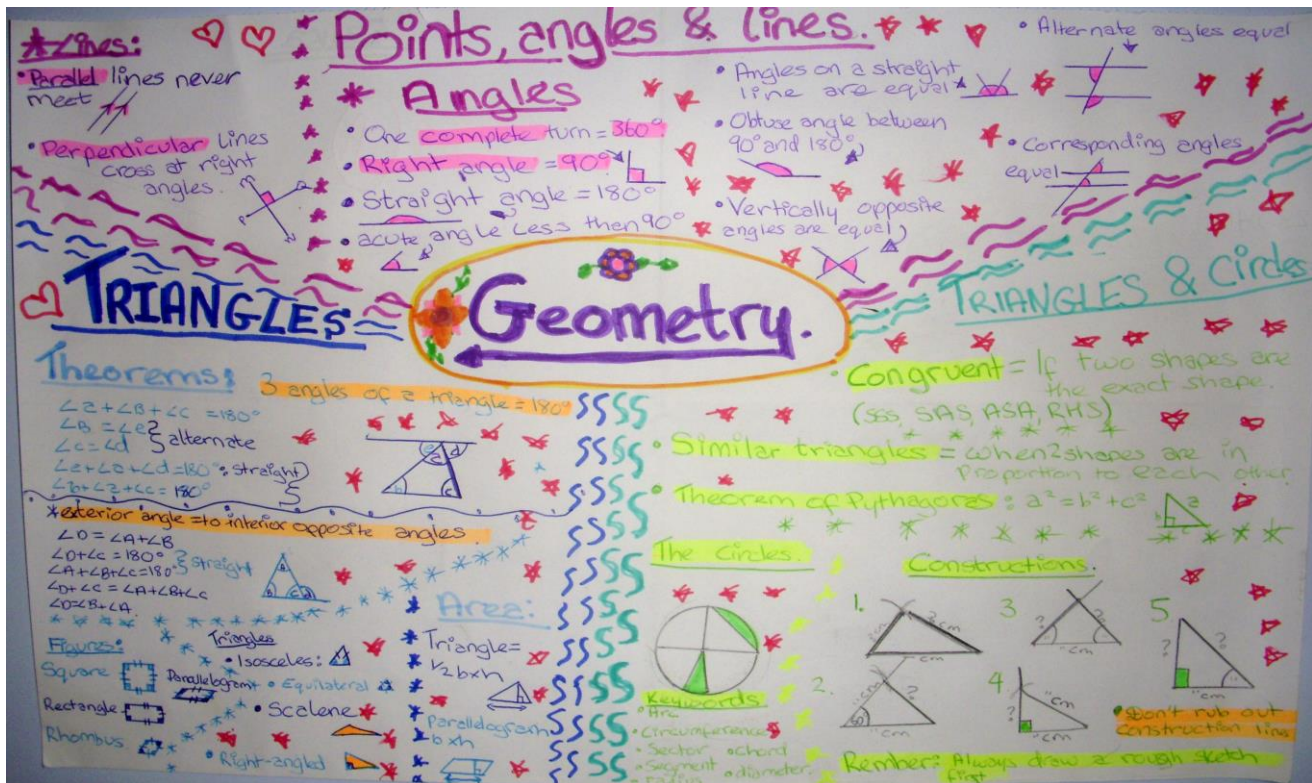 *Lines:
• Parallel lines never
meet
• Perpendicular Lines
cross at right
angles.
Points, angles & lines.
* Angles
• One complete turn = 360°
• Right angle = 90°
• Straight angle = 180°
• acute angle Less then 90°
• Angles on a straight
line are equal
• Obtuse angle between
90° and 180°
• Vertically opposite
angles are equal
• Alternate angles equal
• Corresponding angles
equal
Geometry.
TRIANGLES:
Theorems:
3 angles of a triangle = 180°
∠a+∠B+∠c = 180°
∠B = ∠e
∠c = ∠d } alternate
∠e+∠a+∠d = 180° : straight
∠b+∠a+∠c = 180°
e a d
b c
*exterior angle = to interior opposite angles.
∠D = ∠A+∠B
∠D+∠C = 180°
∠A+∠B+∠C = 180° } straight
∠D+∠C = ∠A+∠B+∠C
∠D = ∠B+∠A
Figures:
Square
Parallelogram
Rectangle
Rhombus
Triangles
• Isosceles:
• Equilateral
• Scalene
• Right-angled
Area:
Triangle =
1/2 b x h
h
Paralldogram
b x h
TRIANGLES & Circles
• Congruent = If two shapes are
the exact shape.
(SSS, SAS, ASA, RHS)
• Similar triangles = when 2 shapes are in
proportion to each other
• Theorem of Pythagoras : a² = b² + c²
The Circles.
Keywords
• Arc
• Circumference
• Sector • chord
• Segment • diameter
• radius
Constructions.
1.
"cm
2.
60°
"cm
3
? ?
"cm
4
?
"cm
5
? ?
"cm
• Don't rub out
Construction lines
Rember: Always draw a rough sketch
first